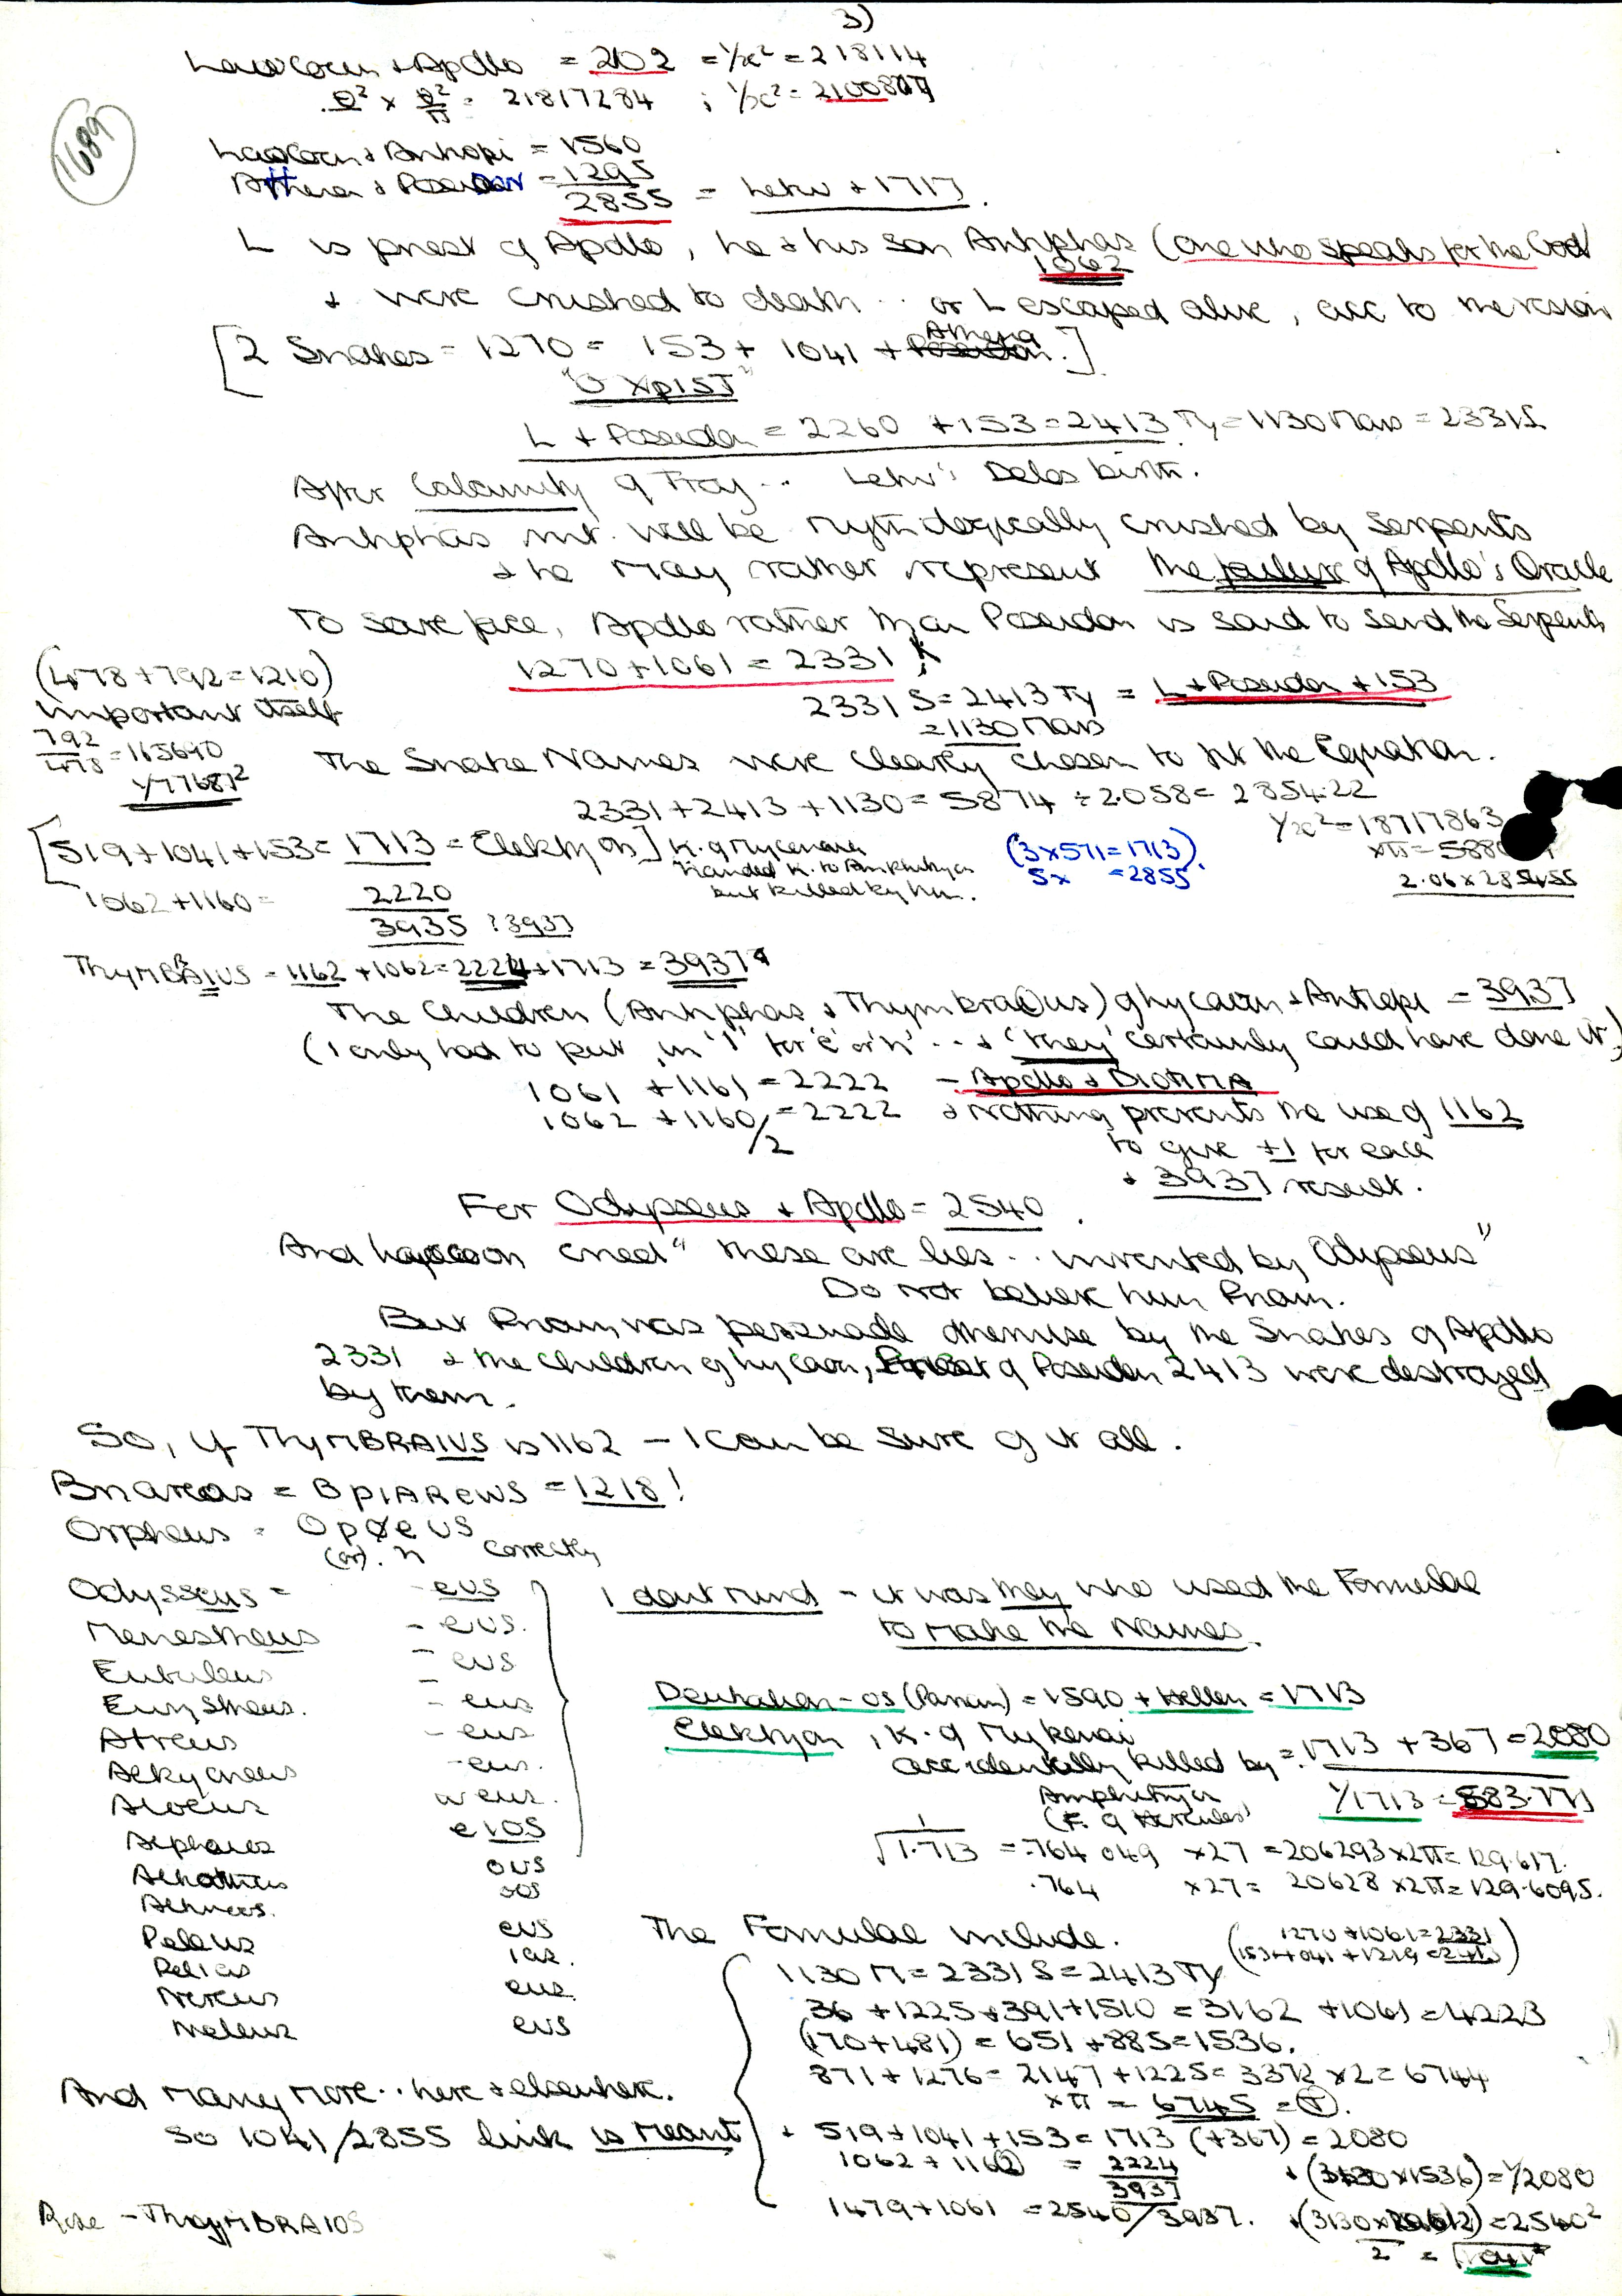 3)
+ Apollo = 202 = 1/x² = 218114
θ² × θ²/π = 21817284 ; 1/x² =
1689
Laocoon + Antiopi = 1560
Athena + Poseidon = 1295
2855 = Leto + 1717.
L is priest of Apollo, he + his son Antiphas (one who speaks for the God
1062
+ were crushed to death .. or L escaped alive, acc to the version
[2 Snakes = 1270 = 153 + 1041 + Athena.]
"O XpIST"
L + Poseidon = 2260 + 153 = 2413 Ty = 1130 Mars = 2331S
After Calamity of Troy... Leto's Delos birth.
Antiphas will be mythologically crushed by Serpents
+ he may rather represent the failure of Apollo's Oracle
To save face, Apollo rather than Poseidon is said to send the Serpents
1270 + 1061 = 2331
(478 + 792 = 1270)
important itself
2331 S = 2413 Ty = L + Poseidon + 153
= 1130 Mars
792/478 = 165690
1/77687²
The Snake Names were clearly chosen to fit the Equation.
2331 + 2413 + 1130 = 5874 ÷ 2.058 = 2854.22
1/x² = 18717863
×π = 588
2.06 × 285455
[519 + 1041 + 153 = 1713 = Elektryon] K. of Mycenae
handed K. to Amphitryon
but killed by him.
(3 × 571 = 1713).
5x = 2855
1062 + 1160 = 2220
3935 ? 3937
ThyMBRAIUS = 1162 + 1062 = 2224 + 1713 = 3937
The Children (Antiphas + Thymbraeus) of Lycaon + Antiopi = 3937
(I only had to put in 'I' for 'e' or 'n' ... + 'they' certainly could have done it)
1061 + 1161 = 2222 - Apollo + DIOTIMA
1062 + 1160/2 = 2222 + Nothing prevents the use of 1162
to give ±1 for each
+ 3937 result.
For Odysseus + Apollo = 2540.
And cried "these are lies .. invented by Odysseus"
Do not believe him Priam.
But Priam was persuade otherwise by the Snakes of Apollo
2331 + the children of Lycaon, of Poseidon 2413 were destroyed
by them.
So, if ThyMBRAIUS is 1162 - I can be sure of it all.
Briareos = BpIAREWS = 1218!
Orpheus = OpφeUS
(or). n correctly
Odysseus = - eus
Menestheus - eus.
Eubuleus - eus
Eurystheus. - eus
Atreus - eus
Alkyoneus - eus.
Aloeus w eus.
Alpheus eIOS
ous
oos
Peleus eus
Pelias ias.
Nereus eus
Neleus eus
I dont mind - it was they who used the Formulae
to make the Names.
Deukalion-os (Parnam) = 1590 + Hellen = 1713
Elektryon, K. of Mykenai
accidentally killed by = 1713 + 367 = 2080
Amphitryon
(F. of Hercules)
1/1713 = 583.771
1/√1.713 = .764 049 × 27 = 206293 × 2π = 129.617.
.764 × 27 = 20628 × 2π = 129.6095.
The Formulae include.
(1270 + 1061 = 2331
153 + 1041 + 1219 = 2413)
1130 M = 2331 S = 2413 Ty
36 + 1225 + 391 + 1510 = 3162 + 1061 = 4223
(170 + 481) = 651 + 885 = 1536.
871 + 1276 = 2147 + 1225 = 3372 × 2 = 6744
×π = 6745 =
And many more .. here + elsewhere.
So 1041/2855 link is meant
+ 519 + 1041 + 153 = 1713 (+367) = 2080
1062 + 1162 = 2224
3937
+ (3130 × 1536) = 1/2080
1479 + 1061 = 2540/3937.
= 2540²
- ThyMBRAIOS